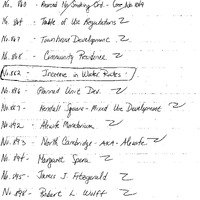 No. 840 - Amend No Smoking Ord. - Gen. No. 809
No. 841 - Table of Use Regulations
No. 847 - Townhouse Development
No. 848 - Community Residence
No. 882 - Increase in Water Rates!
No. 886 - Planned Unit Dev.
No. 887 - Kendall Square - Mixed Use Development
No. 892 - Alewife Moratorium
No. 893 - North Cambridge - AKA - Alewife
No. 894 - Margaret Spera
No. 895 - James J. Fitzgerald
No. 898 - Robert L. Wolff